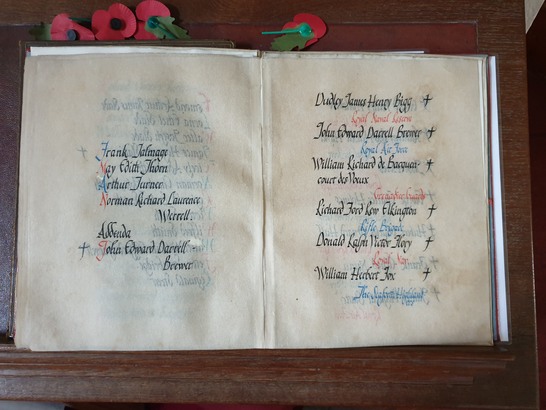 Frank Talmage
May Edith Thorn
Arthur Turner
Norman Richard Laurence
Werrell.
Addenda
✝ John Edward Darrell
Brewer
Dudley James Henry Bigg ✝
Royal Naval Reserve
John Edward Darrell Brewer ✝
Royal Air Force
William Richard de Bacquen- ✝
court des Voeux
Grenadier Guards
Richard Ford Low Elkington ✝
Rifle Brigade
Donald Ralph Victor Flory ✝
Royal Navy
William Herbert Fox ✝
The Seaforth Highlanders